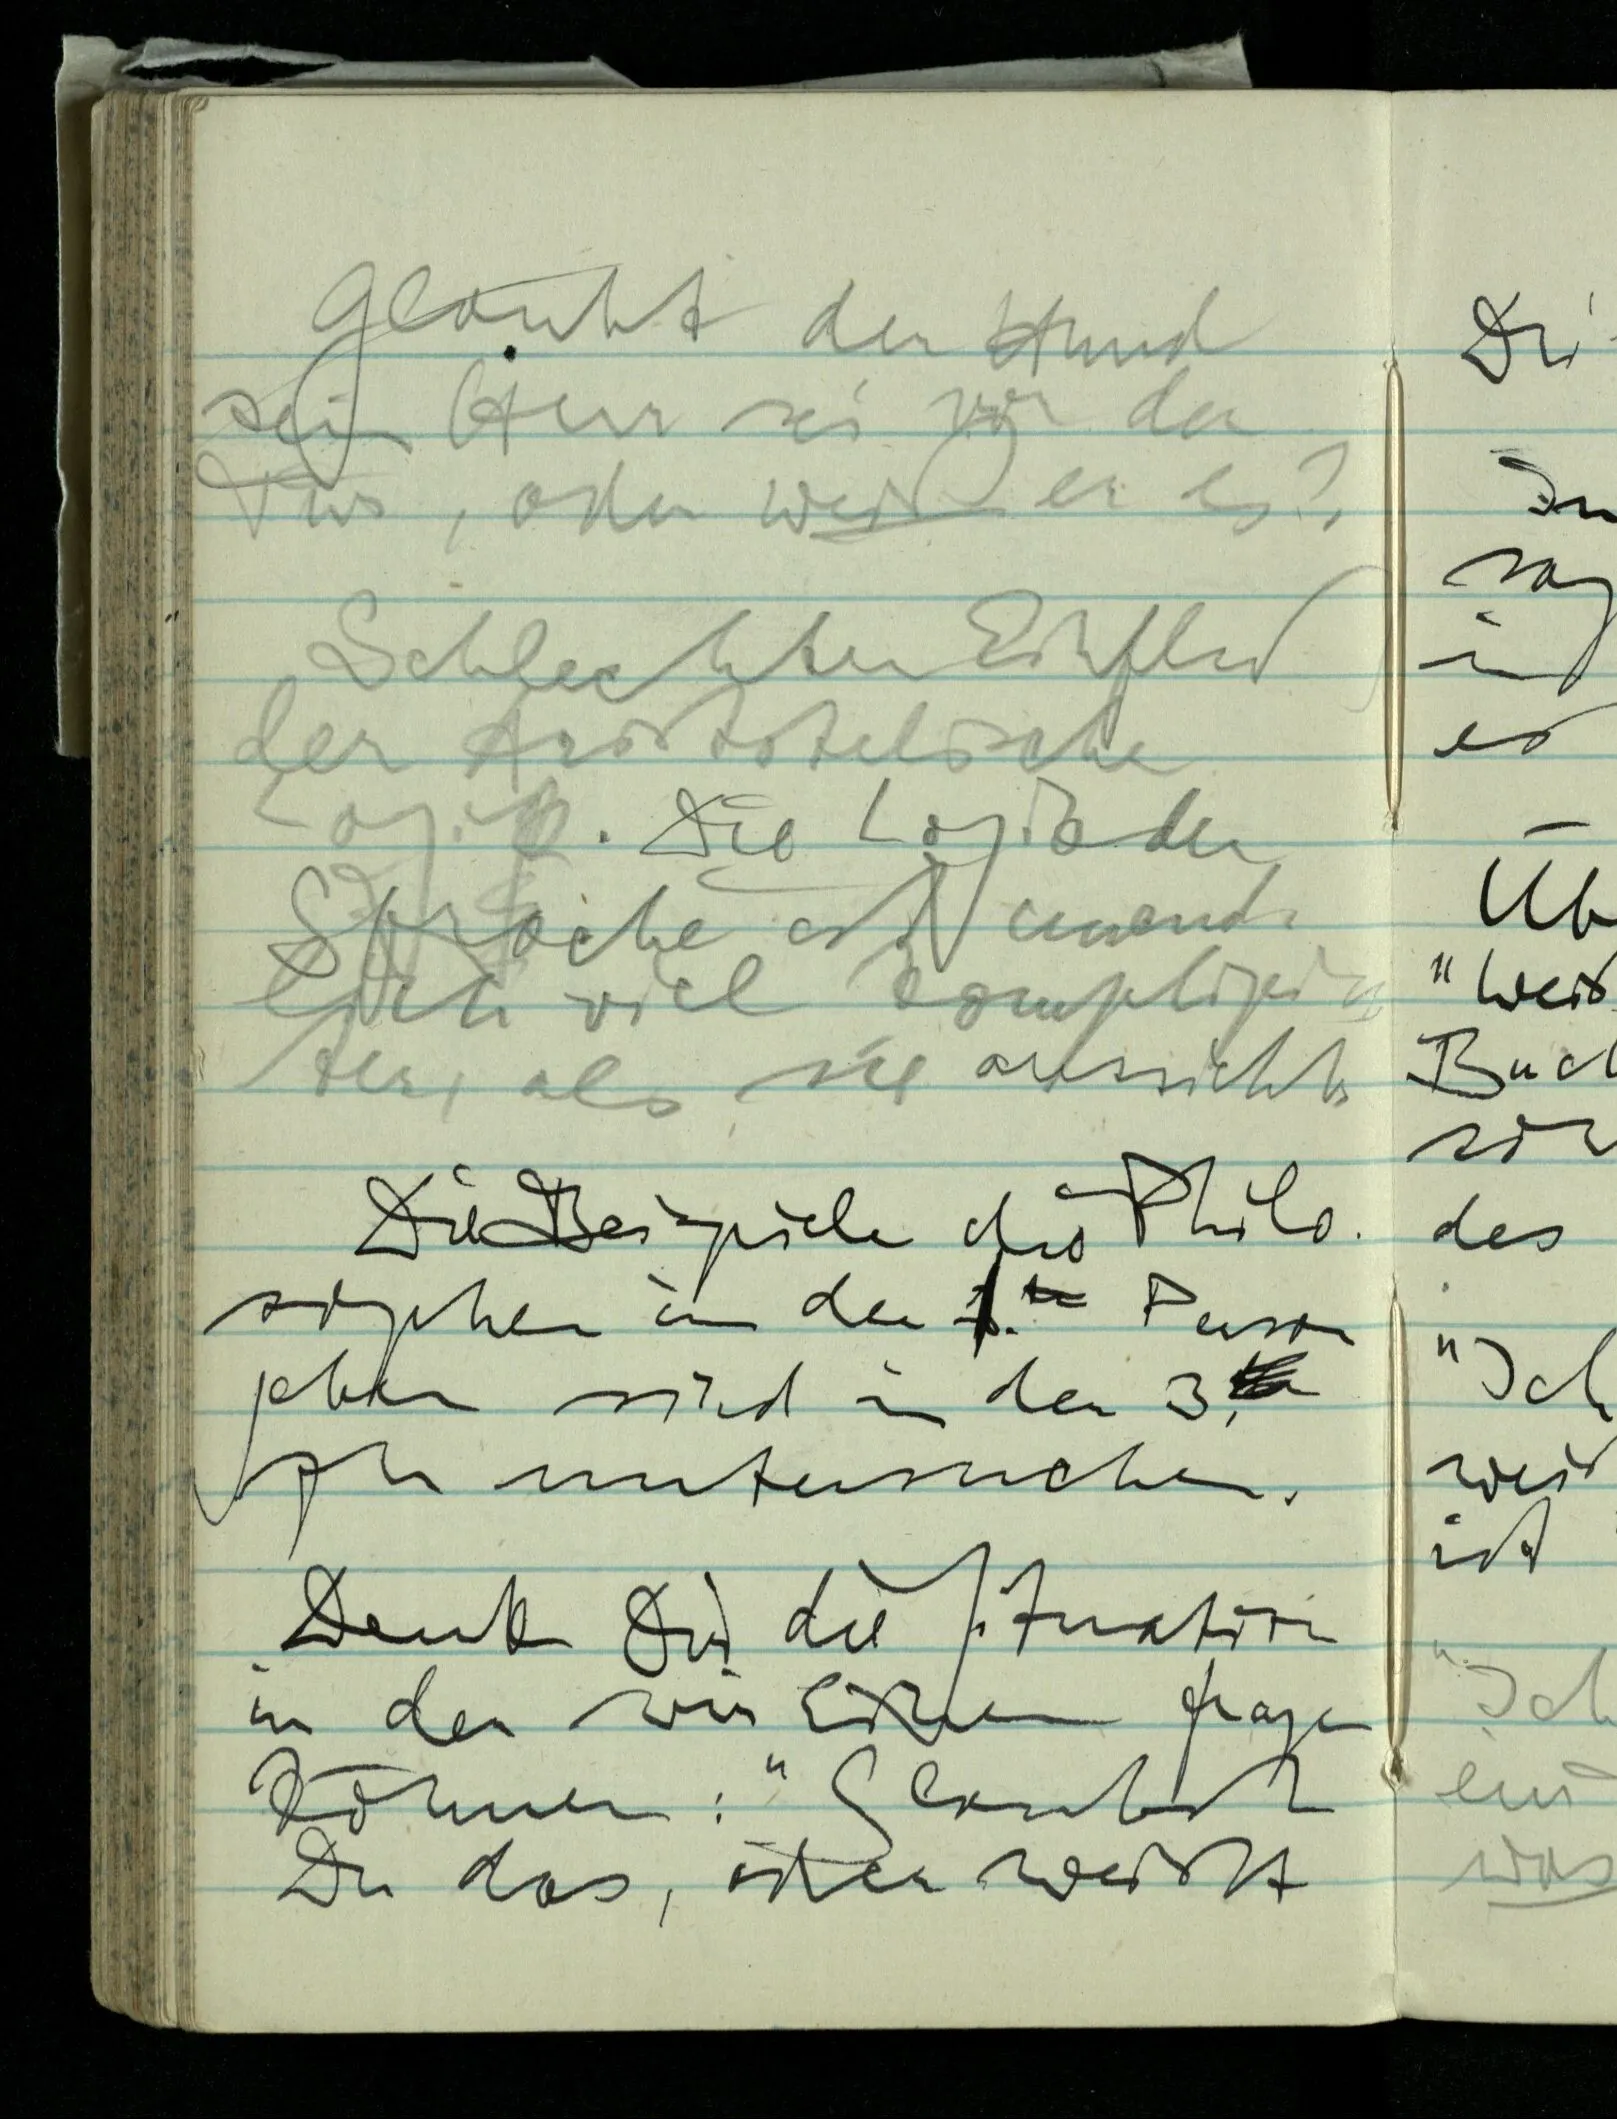 Glaubt der Hund
sein Herr sei vor der
Tür, oder weiß er es?
Schlechter Einfluß
der Aristotelischen
Logik. Die Logik der
Sprache ist unend-
lich viel komplizier-
ter, als sie aussieht.
Die Beispiele die Philo-
sophen in der 1. Person
geben sind in der 3.
zu untersuchen.
Denk Dir die Situation
in der wir Einen fragen
können: "Glaubst
Du das, oder weißt
Di
In
sag
in
es
Üb
"weiß
Buch
des
"Ich
weiß
ist
"Ich
ein
was